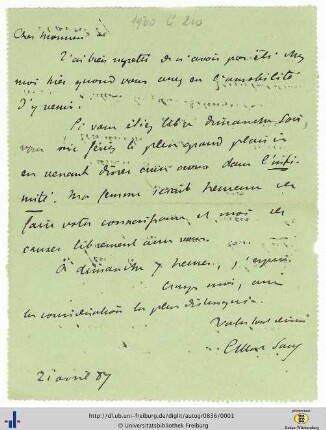 1900 C 210
Cher Monsieur
J'ai bien regretté de n'avoir pas été chez
moi hier quand vous avez eu l'amabilité
d'y venir.
Si vous étiez libre dimanche soir,
vous me feriez le plus grand plaisir
en venant dîner avec nous dans l'inti-
mité. Ma femme serait heureuse de
faire votre connaissance et moi de
causer librement avec vous.
À dimanche 7 heures, j'espère.
Croyez moi, avec
la considération la plus distinguée.
Votre tout dévoué
21 avril 87
http://dl.ub.uni-freiburg.de/diglit/autogr0836/0001
© Universitätsbibliothek Freiburg
Baden-Württemberg